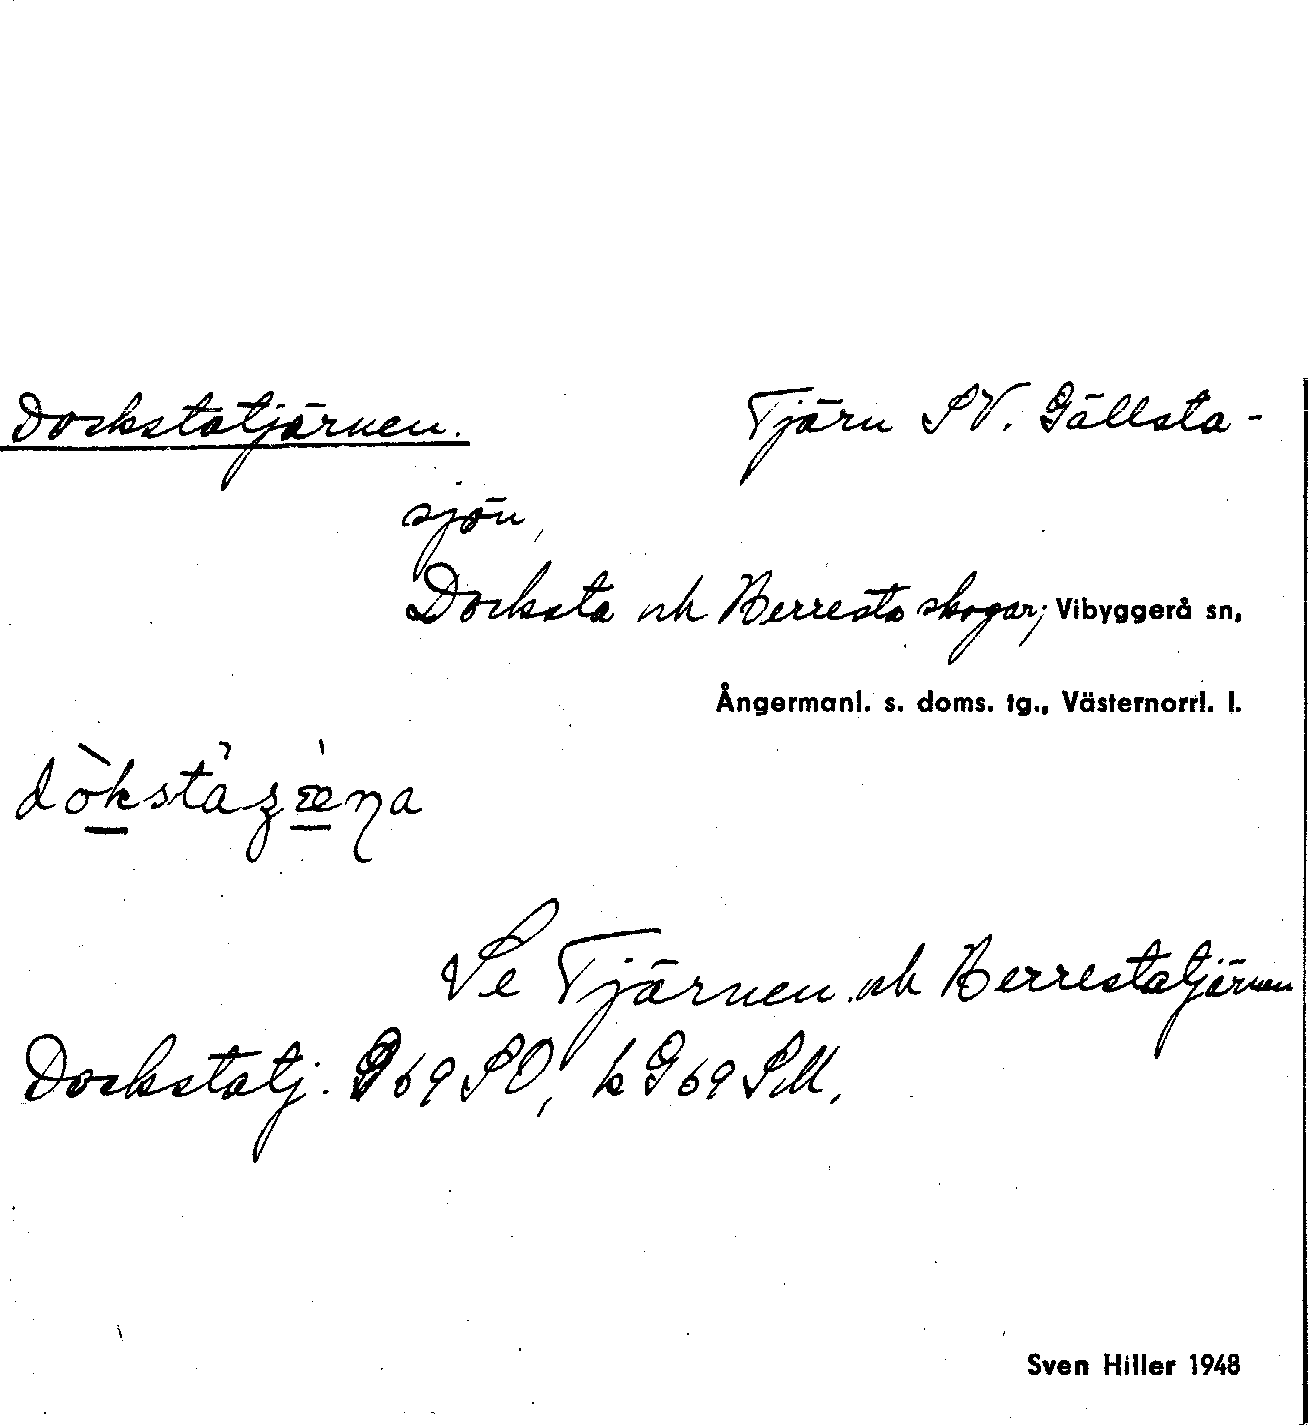 Dockstatjärnen. Tjärn SV. Gällsta-
sjön,
Docksta och Herresta skogar; Vibyggerå sn,
Ångermanl. s. doms. tg., Västernorrl. l.
Se Tjärnen och Herrestatjärnen
Dockstatj. G69SO, k G69SM.
Sven Hiller 1948